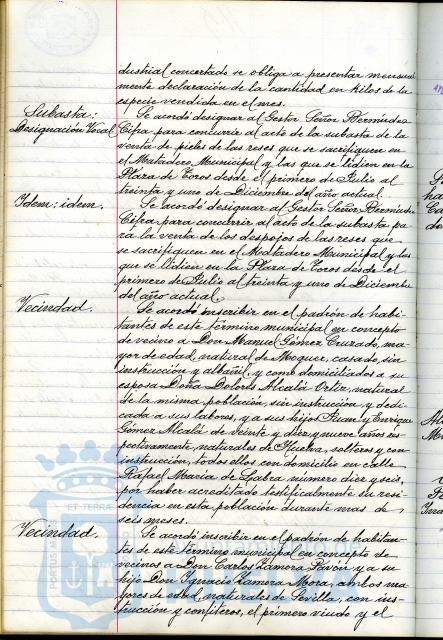 dustrial concertado se obliga a presentar mensual
mente declaración de la cantidad en kilos de la
especie vendida en el mes.
Subasta:
Designación Vocal
Se acordó designar al Gestor Señor Bermúdez
Cifra para concurrir al acto de la subasta de la
venta de pieles de las reses que se sacrifiquen en
el Matadero Municipal y las que se lidien en la
Plaza de Toros desde el primero de Julio al
treinta y uno de Diciembre del año actual.
Idem: idem.
Se acordó designar al Gestor Señor Bermúdez
Cifra para concurrir al acto de la subasta pa
ra la venta de los despojos de las reses que
se sacrifiquen en el Matadero Municipal y las
que se lidien en la Plaza de Toros desde el
primero de Julio al treinta y uno de Diciembre
del año actual.
Vecindad.
Se acordó inscribir en el padrón de habi-
tantes de este término municipal en concepto
de vecino a Don Manuel Gómez Cruzado, ma-
yor de edad, natural de Moguer, casado, sin
instrucción y albañil, y como domiciliados a su
esposa Doña Dolores Alcalá Ortiz, natural
de la misma población, sin instrucción, y dedi-
cada a sus labores, y a sus hijos Juan y Enrique
Gómez Alcalá de veinte y diez y nueve años res
pectivamente, naturales de Huelva, solteros y con
instrucción, todos ellos con domicilio en calle
Rafael María de Labra número diez y seis,
por haber acreditado testificalmente su resi-
dencia en esta población durante mas de
seis meses.
Vecindad.
Se acordó inscribir en el padrón de habitan-
tes de este término municipal en concepto de
vecinos a Don Carlos Zamora Pavón y a su
hijo Don Ignacio Zamora Mora, ambos ma-
yores de edad, naturales de Sevilla, con ins-
trucción y confiteros, el primero viudo y el
PORTUS
ET TERRÆ